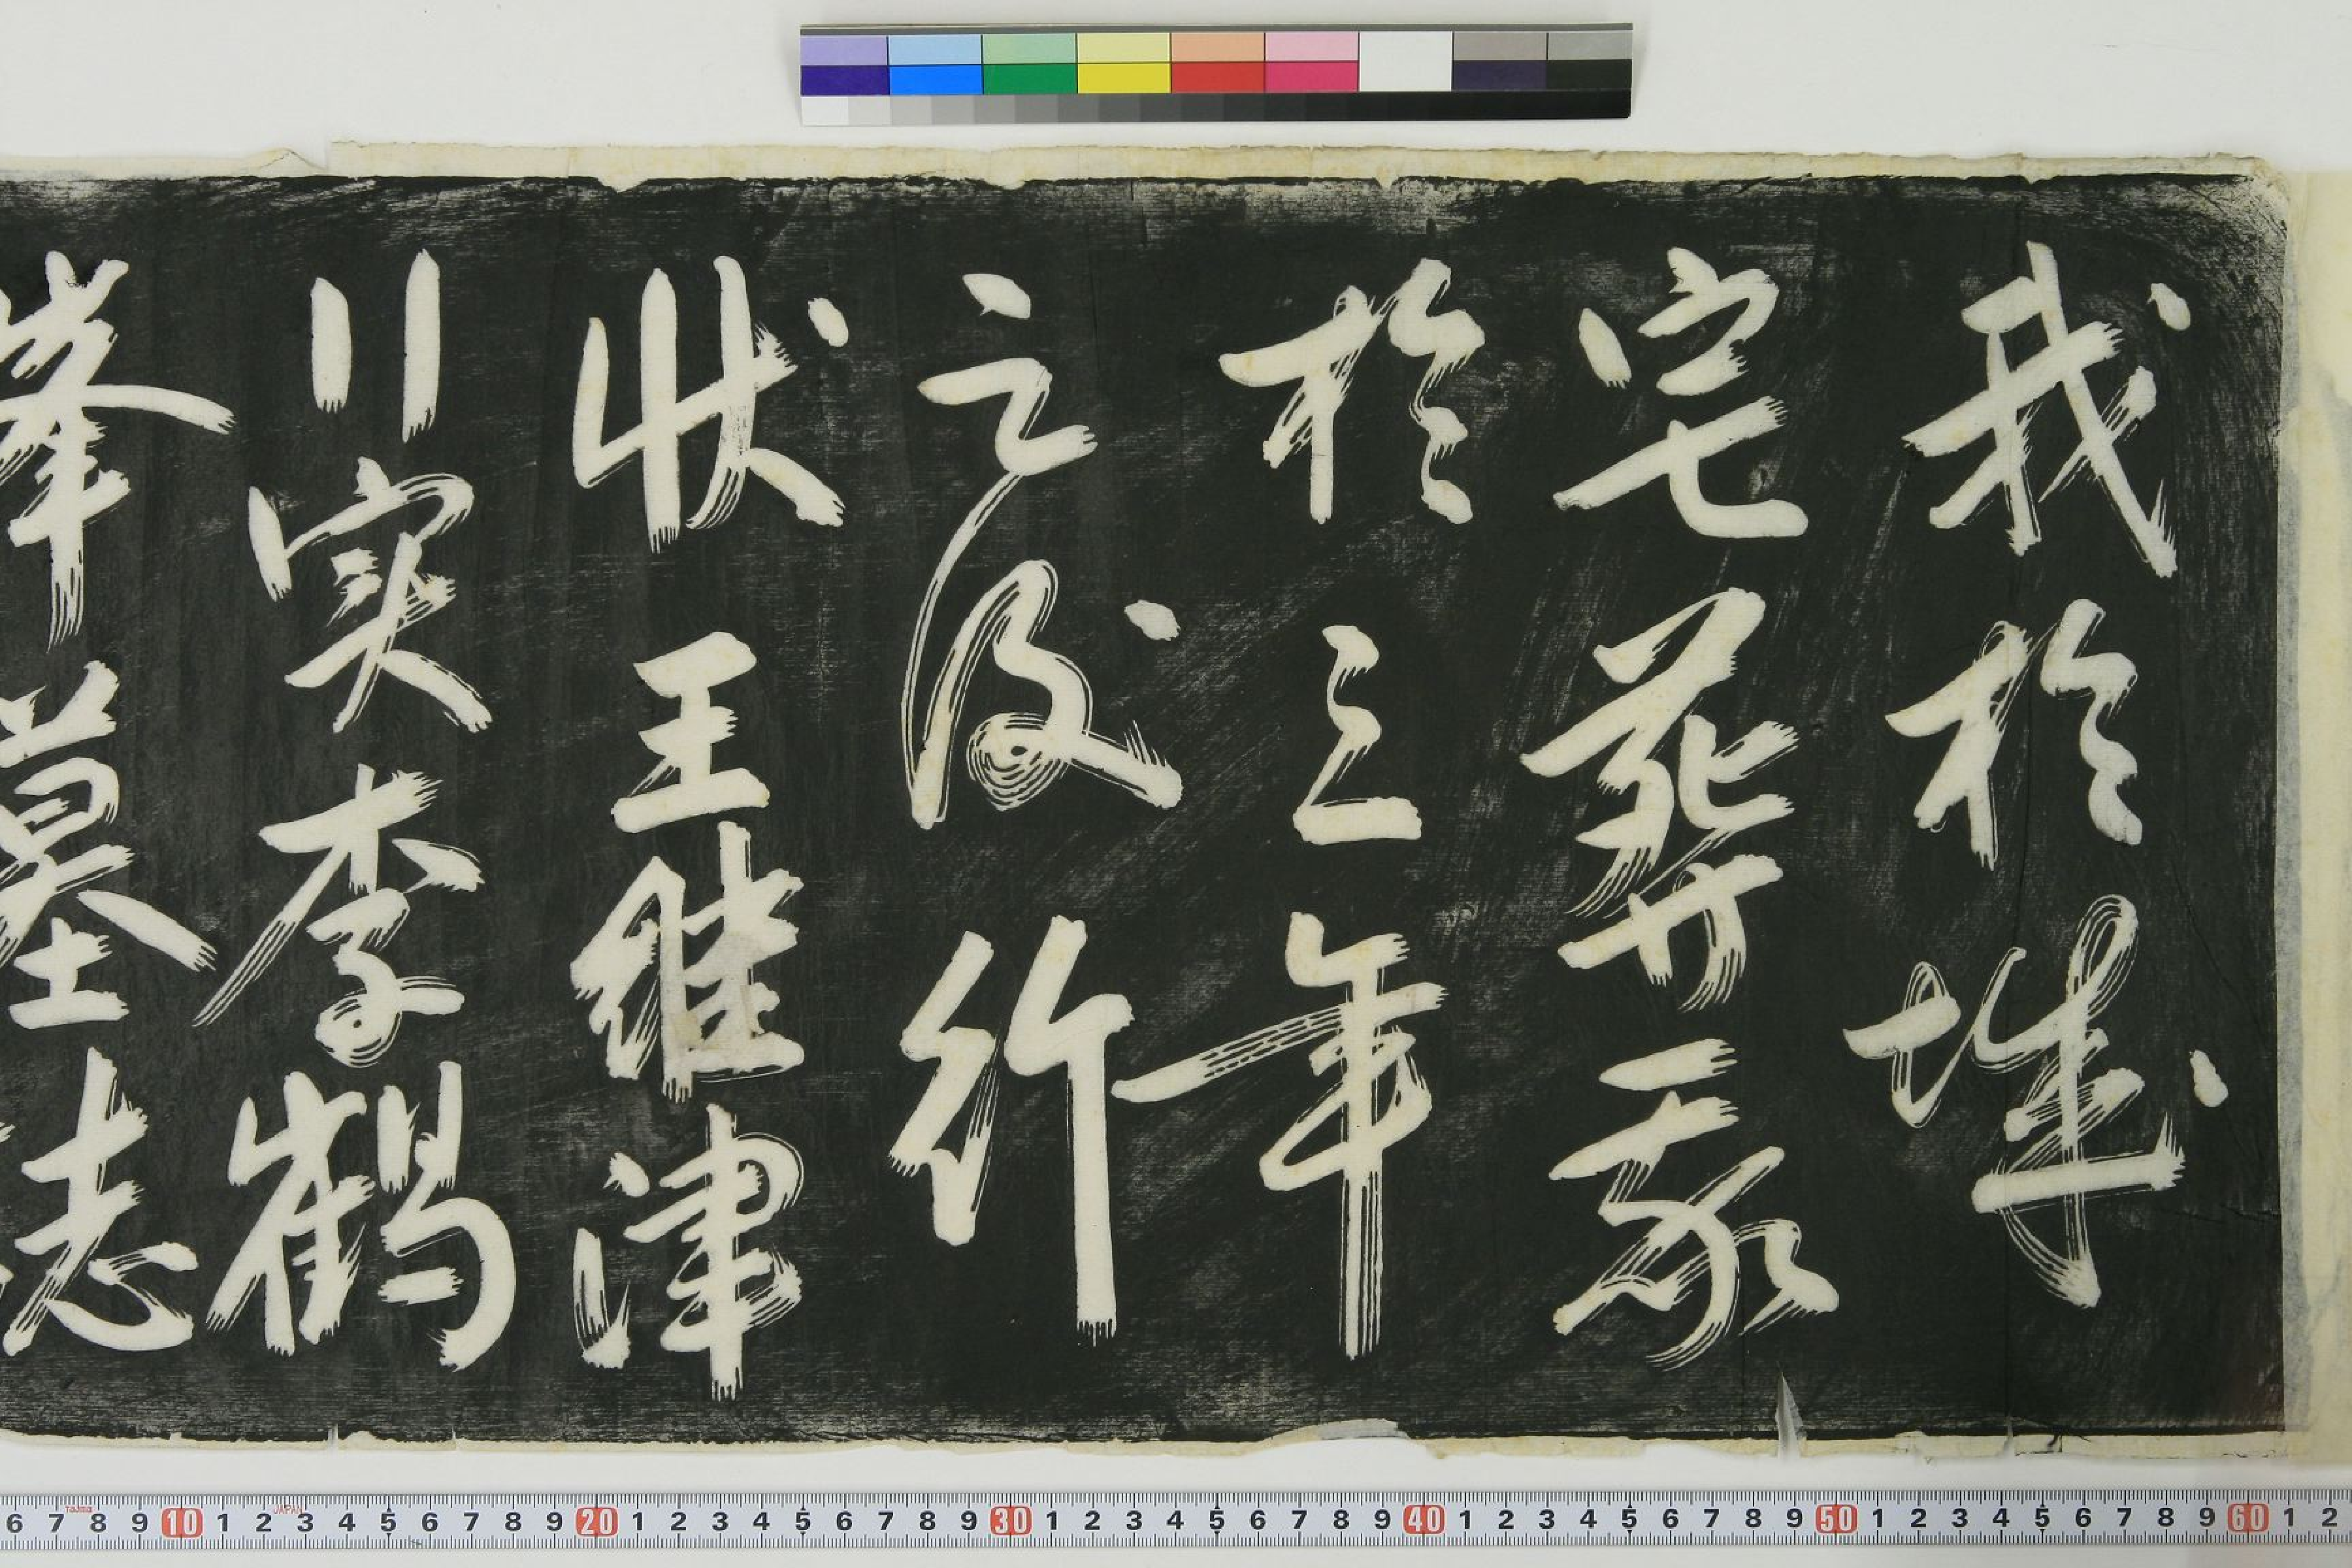 我於城
宅葬
於三年
之行
狀王继津
实李鹤
峯墓志
6 7 8 9 10 1 2 3 4 5 6 7 8 9 20 1 2 3 4 5 6 7 8 9 30 1 2 3 4 5 6 7 8 9 40 1 2 3 4 5 6 7 8 9 50 1 2 3 4 5 6 7 8 9 60 1 2
Tajima JAPAN